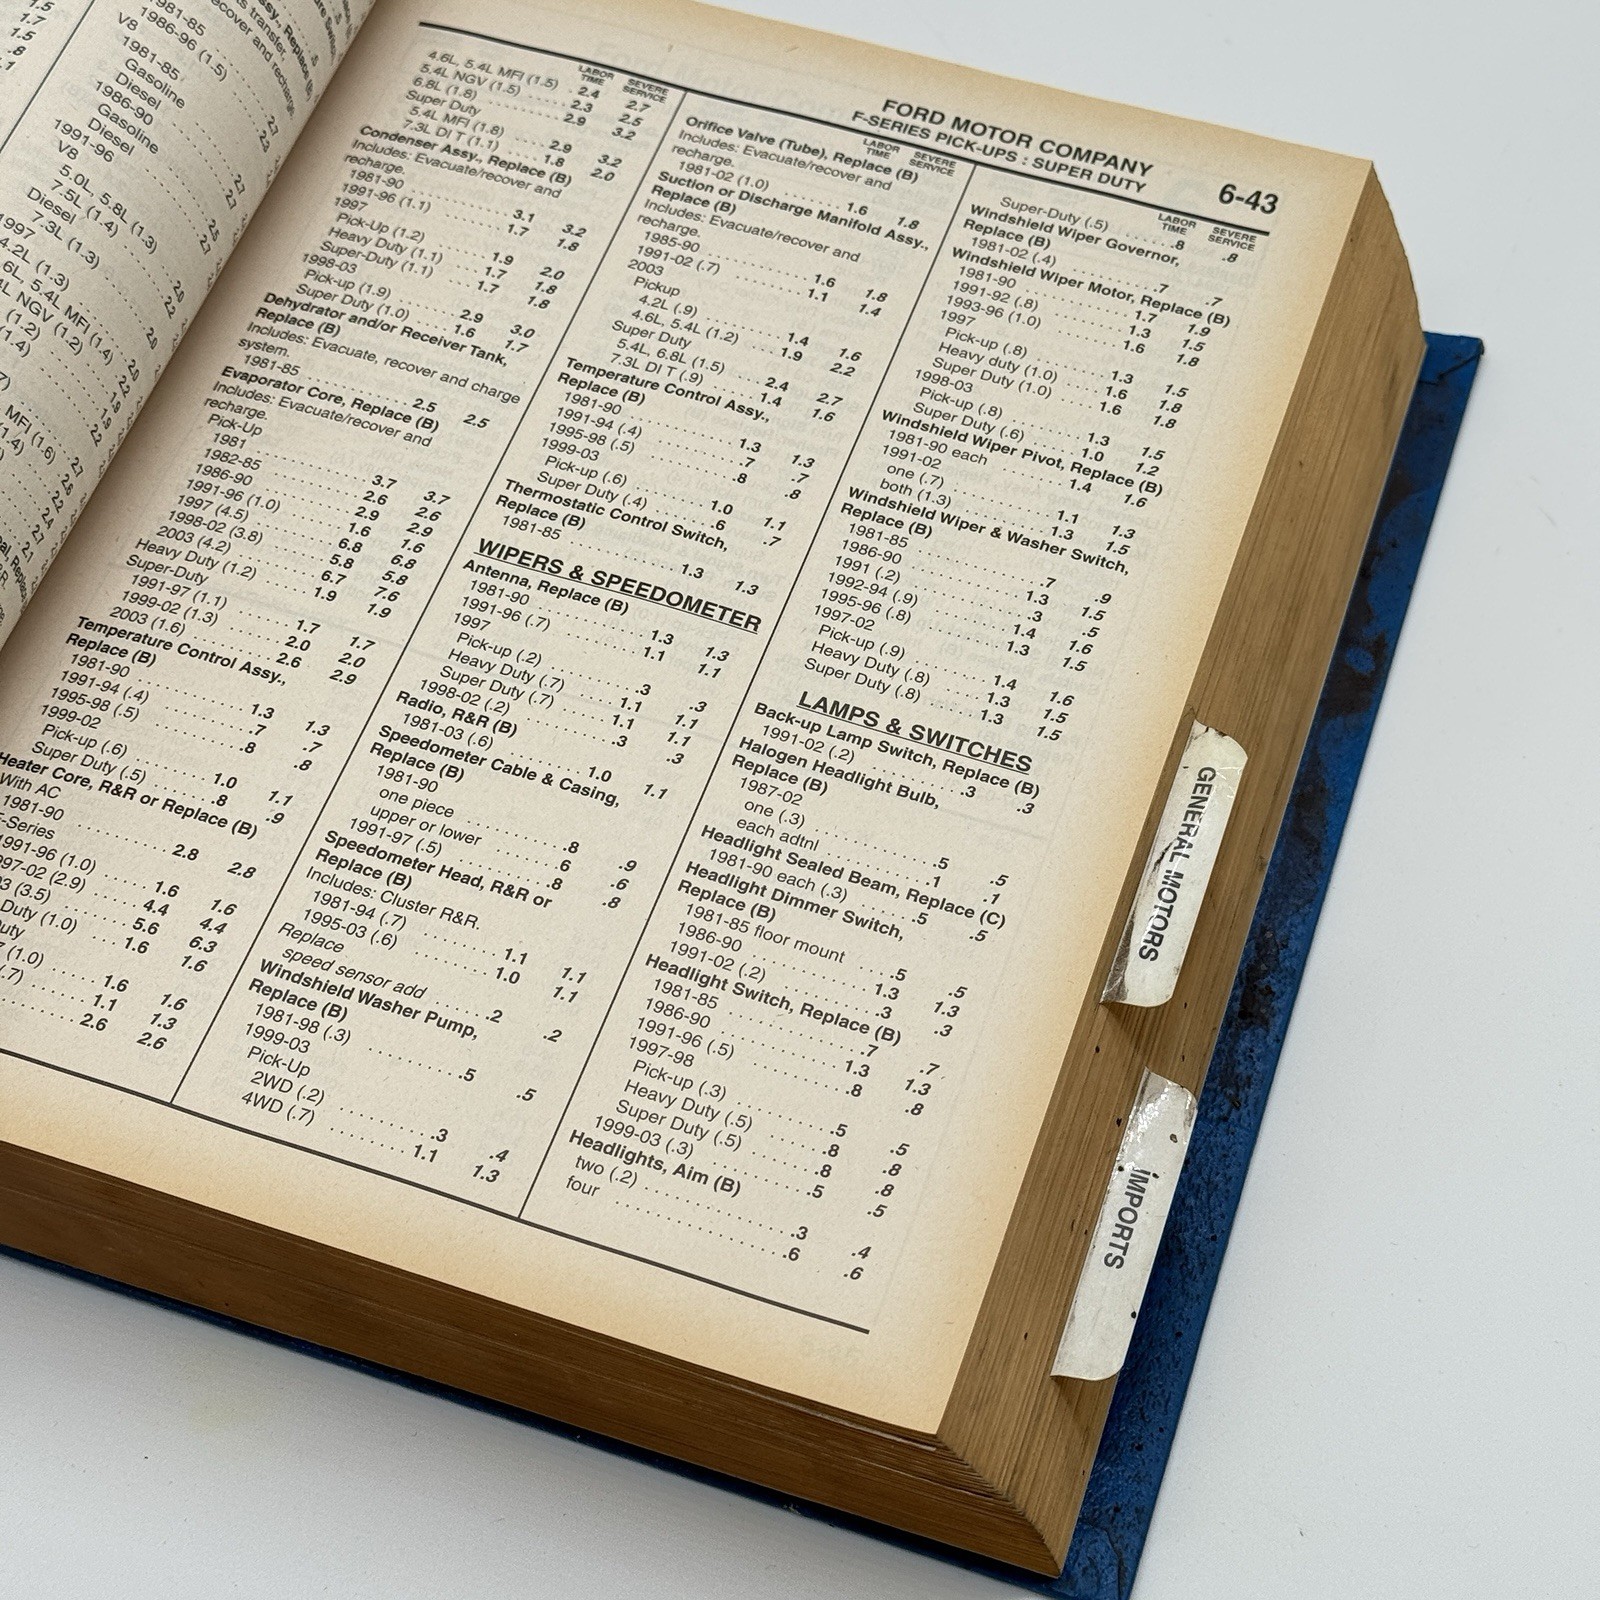 1981-85
1986-96 (1.5)
V8
1981-85
Gasoline
Diesel
1986-90
Gasoline
Diesel
1991-96
V8
5.0L, 5.8L (1.3)
7.5L (1.4)
Diesel
7.3L (1.3)
1997
4.2L (1.3)
LABOR TIME SEVERE SERVICE
4.6L, 5.4L MFI (1.5) 2.4 2.7
5.4L NGV (1.5) 2.3 2.5
6.8L (1.8) 2.9 3.2
Super Duty
5.4L MFI (1.8) 2.9 3.2
7.3L DI T (1.1) 1.8 2.0
Condenser Assy., Replace (B)
Includes: Evacuate/recover and
recharge.
1981-90 3.1 3.2
1991-96 (1.1) 1.7 1.8
1997
Pick-Up (1.2) 1.9 2.0
Heavy Duty (1.1) 1.7 1.8
Super-Duty (1.1) 1.7 1.8
1998-03
Pick-up (1.9) 2.9 3.0
Super Duty (1.0) 1.6 1.7
Dehydrator and/or Receiver Tank,
Replace (B)
Includes: Evacuate, recover and charge
system.
1981-85 2.5 2.5
Evaporator Core, Replace (B)
Includes: Evacuate/recover and
recharge.
Pick-Up
1981 3.7 3.7
1982-85 2.6 2.6
1986-90 2.9 2.9
1991-96 (1.0) 1.6 1.6
1997 (4.5) 6.8 6.8
1998-02 (3.8) 5.8 5.8
2003 (4.2) 6.7 7.6
Heavy Duty (1.2) 1.9 1.9
Super-Duty
1991-97 (1.1) 1.7 1.7
1999-02 (1.3) 2.0 2.0
2003 (1.6) 2.6 2.9
Temperature Control Assy.,
Replace (B)
1981-90 1.3 1.3
1991-94 (.4) .7 .7
1995-98 (.5) .8 .8
1999-02
Pick-up (.6) 1.0 1.1
Super Duty (.5) .8 .9
Heater Core, R&R or Replace (B)
With AC
1981-90 2.8 2.8
-Series
1991-96 (1.0) 1.6 1.6
97-02 (2.9) 4.4 4.4
03 (3.5) 5.6 6.3
Duty (1.0) 1.6 1.6
uty
(1.0) 1.6 1.6
(.7) 1.1 1.3
2.6 2.6
FORD MOTOR COMPANY
F-SERIES PICK-UPS : SUPER DUTY
6-43
LABOR TIME SEVERE SERVICE
Orifice Valve (Tube), Replace (B)
Includes: Evacuate/recover and
recharge.
1981-02 (1.0) 1.6 1.8
Suction or Discharge Manifold Assy.,
Replace (B)
Includes: Evacuate/recover and
recharge.
1985-90 1.6 1.8
1991-02 (.7) 1.1 1.4
2003
Pickup
4.2L (.9) 1.4 1.6
4.6L, 5.4L (1.2) 1.9 2.2
Super Duty
5.4L, 6.8L (1.5) 2.4 2.7
7.3L DI T (.9) 1.4 1.6
Temperature Control Assy.,
Replace (B)
1981-90 1.3 1.3
1991-94 (.4) .7 .7
1995-98 (.5) .8 .8
1999-03
Pick-up (.6) 1.0 1.1
Super Duty (.4) .6 .7
Thermostatic Control Switch,
Replace (B)
1981-85 1.3 1.3
WIPERS & SPEEDOMETER
Antenna, Replace (B)
1981-90 1.3 1.3
1991-96 (.7) 1.1 1.1
1997
Pick-up (.2) .3 .3
Heavy Duty (.7) 1.1 1.1
Super Duty (.7) 1.1 1.1
1998-02 (.2) .3 .3
Radio, R&R (B)
1981-03 (.6) 1.0 1.1
Speedometer Cable & Casing,
Replace (B)
1981-90
one piece .8 .9
upper or lower .6 .6
1991-97 (.5) .8 .8
Speedometer Head, R&R or
Replace (B)
Includes: Cluster R&R.
1981-94 (.7) 1.1 1.1
1995-03 (.6) 1.0 1.1
Replace
speed sensor add .2 .2
Windshield Washer Pump,
Replace (B)
1981-98 (.3) .5 .5
1999-03
Pick-Up
2WD (.2) .3 .4
4WD (.7) 1.1 1.3
LABOR TIME SEVERE SERVICE
Super-Duty (.5) .8 .8
Windshield Wiper Governor,
Replace (B)
1981-02 (.4) .7 .7
Windshield Wiper Motor, Replace (B)
1981-90 1.7 1.9
1991-92 (.8) 1.3 1.5
1993-96 (1.0) 1.6 1.8
1997
Pick-up (.8) 1.3 1.5
Heavy duty (1.0) 1.6 1.8
Super Duty (1.0) 1.6 1.8
1998-03
Pick-up (.8) 1.3 1.5
Super Duty (.6) 1.0 1.2
Windshield Wiper Pivot, Replace (B)
1981-90 each 1.4 1.6
1991-02
one (.7) 1.1 1.3
both (1.3) 1.3 1.5
Windshield Wiper & Washer Switch,
Replace (B)
1981-85 .7 .9
1986-90 1.3 1.5
1991 (.2) .3 .5
1992-94 (.9) 1.4 1.6
1995-96 (.8) 1.3 1.5
1997-02
Pick-up (.9) 1.4 1.6
Heavy Duty (.8) 1.3 1.5
Super Duty (.8) 1.3 1.5
LAMPS & SWITCHES
Back-up Lamp Switch, Replace (B)
1991-02 (.2) .3 .3
Halogen Headlight Bulb,
Replace (B)
1987-02
one (.3) .5 .5
each adtnl .1 .1
Headlight Sealed Beam, Replace (C)
1981-90 each (.3) .5 .5
Headlight Dimmer Switch,
Replace (B)
1981-85 floor mount .5 .5
1986-90 1.3 1.3
1991-02 (.2) .3 .3
Headlight Switch, Replace (B)
1981-85 .7 .7
1986-90 1.3 1.3
1991-96 (.5) .8 .8
1997-98
Pick-up (.3) .5 .5
Heavy Duty (.5) .8 .8
Super Duty (.5) .8 .8
1999-03 (.3) .5 .5
Headlights, Aim (B)
two (.2) .3 .4
four .6 .6
GENERAL MOTORS
IMPORTS